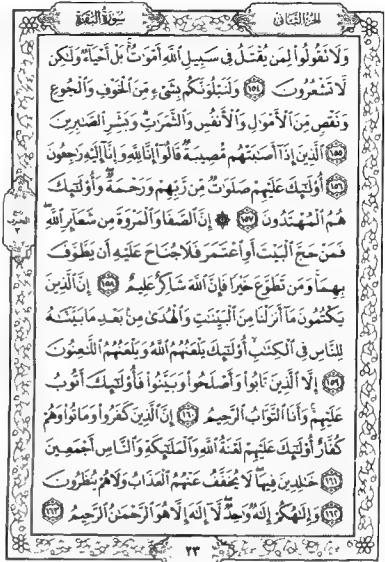 سُورَةُ البَقَرَةِ
الجُزْءُ الثَّانِي
وَلَا تَقُولُوا لِمَن يُقْتَلُ فِي سَبِيلِ اللَّهِ أَمْوَاتٌ بَلْ أَحْيَاءٌ وَلَٰكِن
لَّا تَشْعُرُونَ ١٥٤ وَلَنَبْلُوَنَّكُم بِشَيْءٍ مِّنَ الْخَوْفِ وَالْجُوعِ
وَنَقْصٍ مِّنَ الْأَمْوَالِ وَالْأَنفُسِ وَالثَّمَرَاتِ وَبَشِّرِ الصَّابِرِينَ
١٥٥ الَّذِينَ إِذَا أَصَابَتْهُم مُّصِيبَةٌ قَالُوا إِنَّا لِلَّهِ وَإِنَّا إِلَيْهِ رَاجِعُونَ
١٥٦ أُولَٰئِكَ عَلَيْهِمْ صَلَوَاتٌ مِّن رَّبِّهِمْ وَرَحْمَةٌ وَأُولَٰئِكَ
هُمُ الْمُهْتَدُونَ ١٥٧ ۞ إِنَّ الصَّفَا وَالْمَرْوَةَ مِن شَعَائِرِ اللَّهِ
فَمَنْ حَجَّ الْبَيْتَ أَوِ اعْتَمَرَ فَلَا جُنَاحَ عَلَيْهِ أَن يَطَّوَّفَ
بِهِمَا وَمَن تَطَوَّعَ خَيْرًا فَإِنَّ اللَّهَ شَاكِرٌ عَلِيمٌ ١٥٨ إِنَّ الَّذِينَ
يَكْتُمُونَ مَا أَنزَلْنَا مِنَ الْبَيِّنَاتِ وَالْهُدَىٰ مِن بَعْدِ مَا بَيَّنَّاهُ
لِلنَّاسِ فِي الْكِتَابِ أُولَٰئِكَ يَلْعَنُهُمُ اللَّهُ وَيَلْعَنُهُمُ اللَّاعِنُونَ
١٥٩ إِلَّا الَّذِينَ تَابُوا وَأَصْلَحُوا وَبَيَّنُوا فَأُولَٰئِكَ أَتُوبُ
عَلَيْهِمْ وَأَنَا التَّوَّابُ الرَّحِيمُ ١٦٠ إِنَّ الَّذِينَ كَفَرُوا وَمَاتُوا وَهُمْ
كُفَّارٌ أُولَٰئِكَ عَلَيْهِمْ لَعْنَةُ اللَّهِ وَالْمَلَائِكَةِ وَالنَّاسِ أَجْمَعِينَ
١٦١ خَالِدِينَ فِيهَا لَا يُخَفَّفُ عَنْهُمُ الْعَذَابُ وَلَا هُمْ يُنظَرُونَ
١٦٢ وَإِلَٰهُكُمْ إِلَٰهٌ وَاحِدٌ لَّا إِلَٰهَ إِلَّا هُوَ الرَّحْمَٰنُ الرَّحِيمُ ١٦٣
٢٣